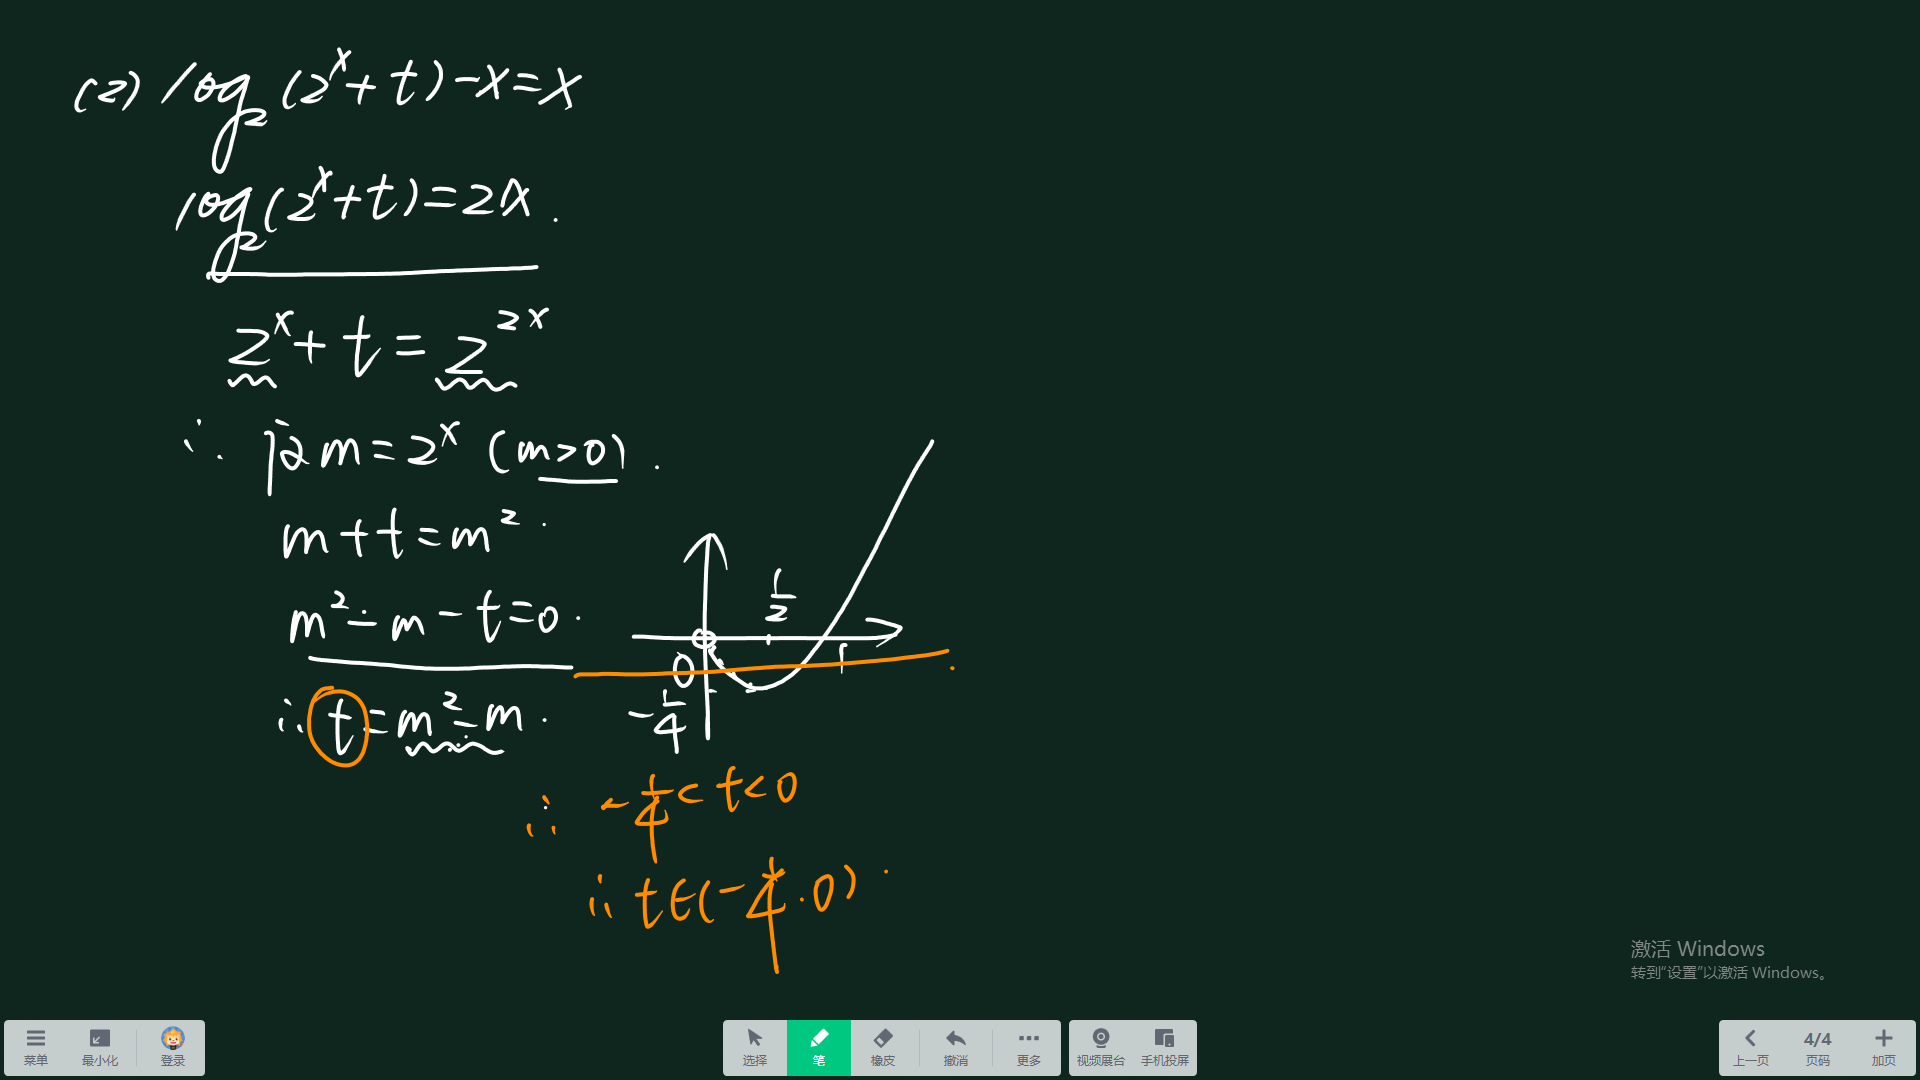 (2) log₂(2ˣ+t)-x=x
log₂(2ˣ+t)=2x.
2ˣ+t=2²ˣ
∴ 设m=2ˣ (m>0).
m+t=m².
m²-m-t=0.
∴ t=m²-m.
1/2
0
1
-1/4
∴ -1/4<t<0
∴ t∈(-1/4.0).
激活 Windows
转到“设置”以激活 Windows。
菜单 最小化 登录 选择 笔 橡皮 撤消 更多 视频展台 手机投屏 上一页 4/4 页码 加页